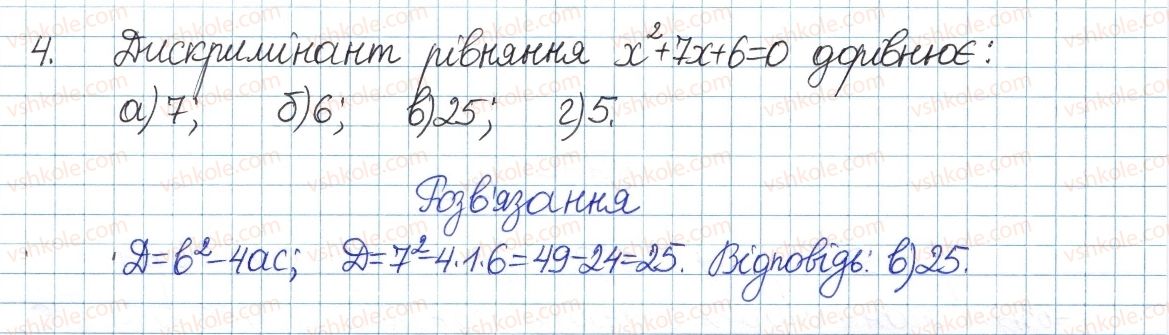 4. Дискримінант рівняння x²+7x+6=0 дорівнює:
а) 7; б) 6; в) 25; г) 5.
Розв'язання
D=b²-4ac; D=7²-4·1·6=49-24=25. Відповідь: в) 25.